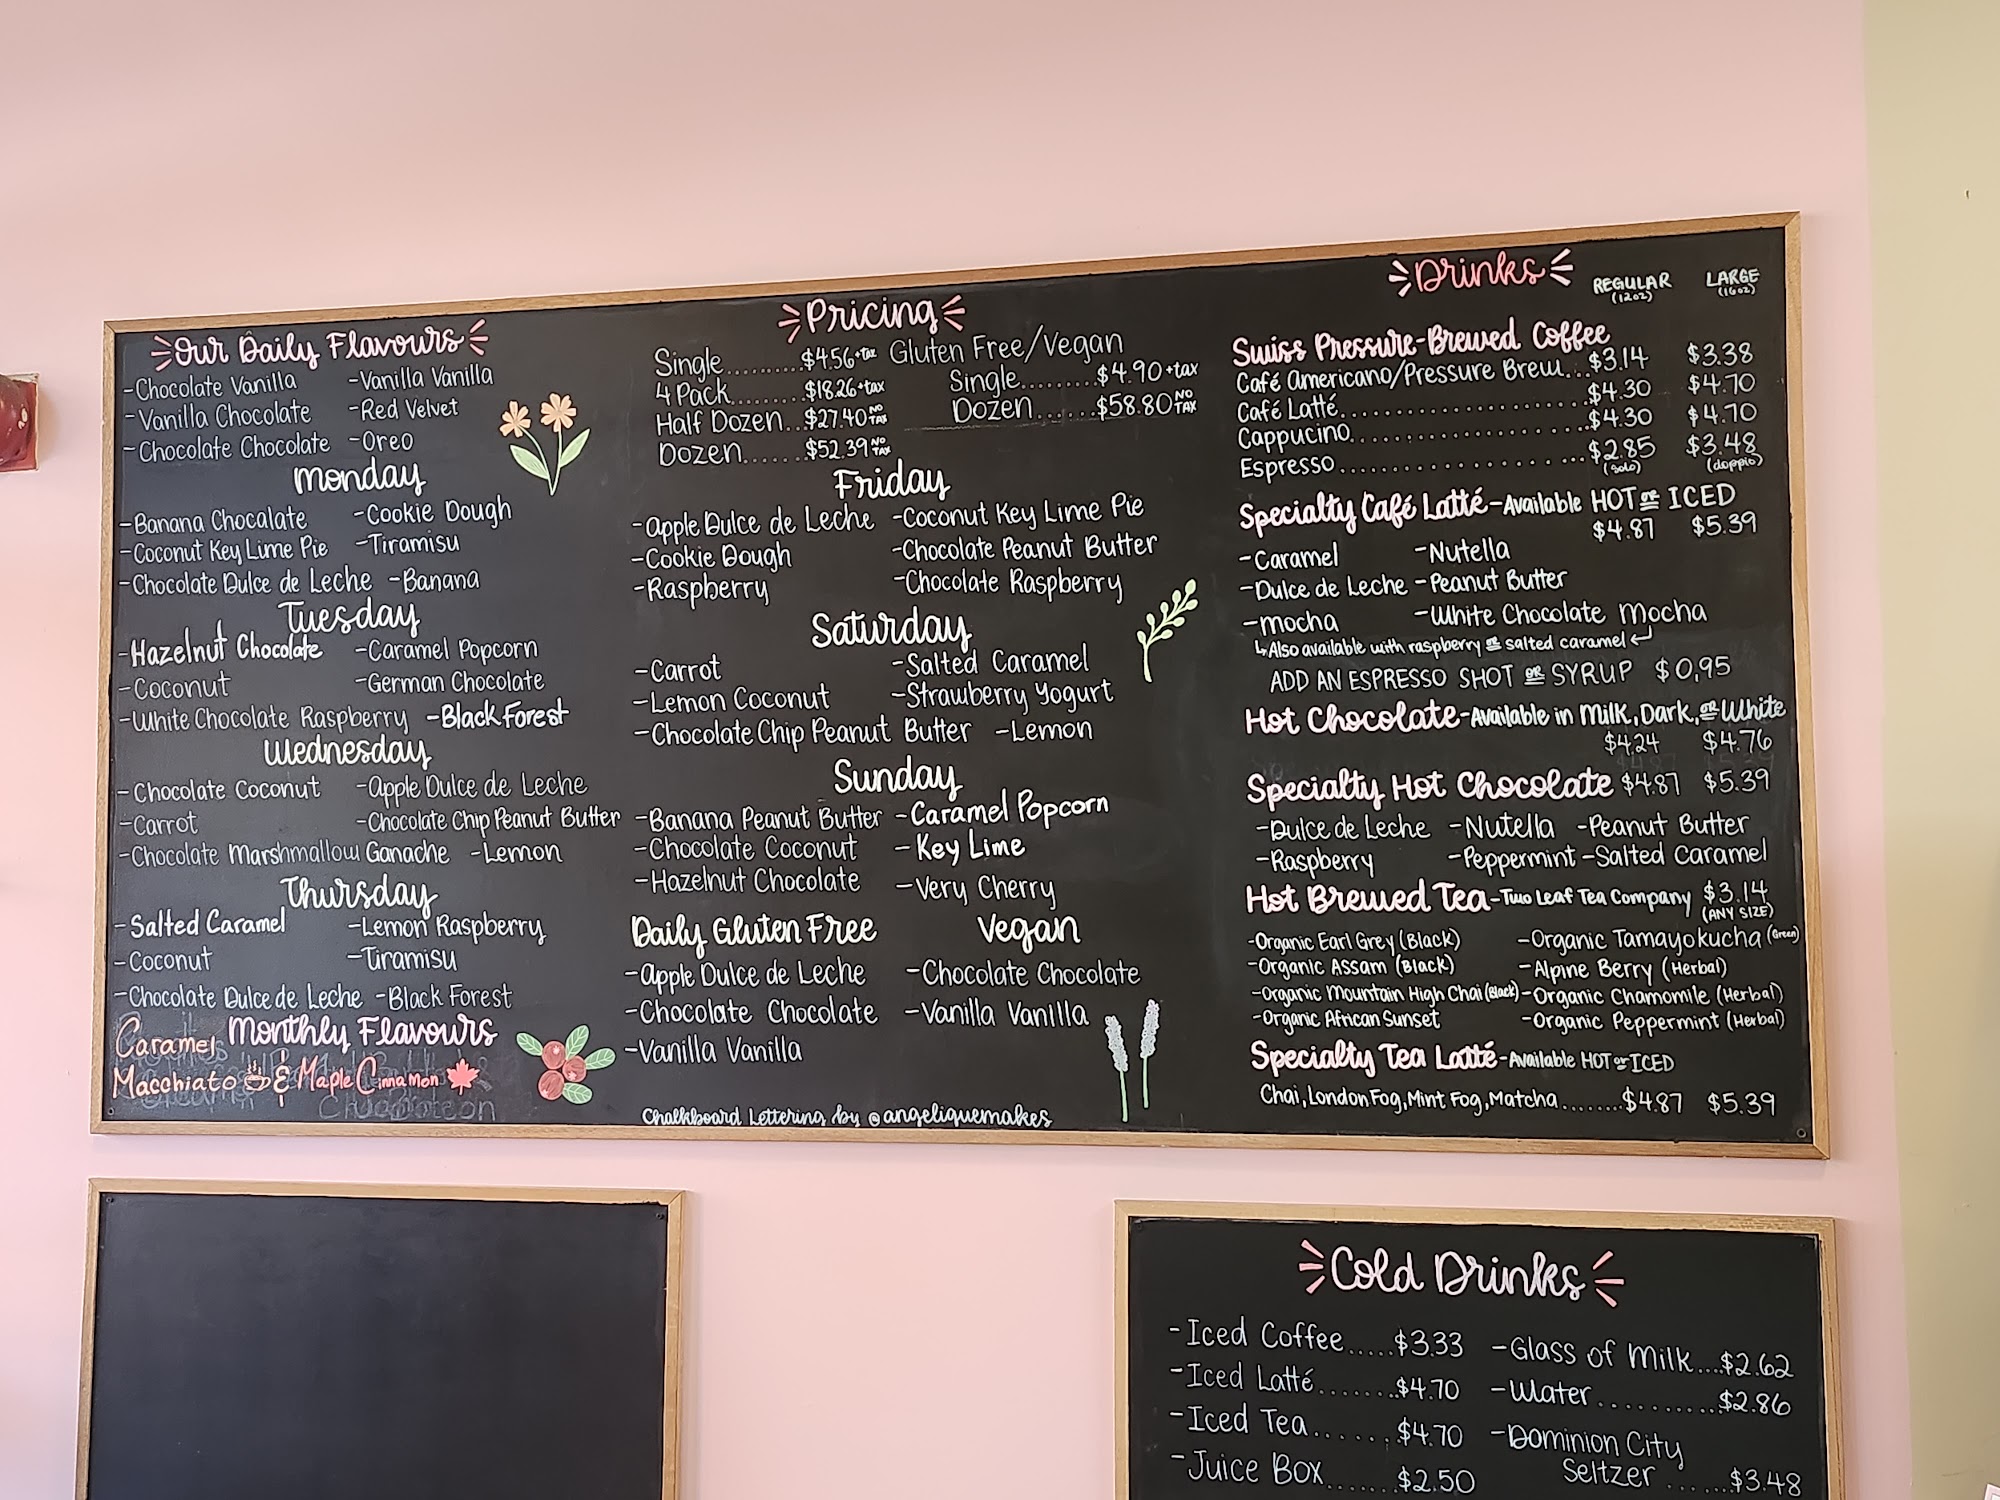 Our Daily Flavours
-Chocolate Vanilla -Vanilla Vanilla
-Vanilla Chocolate -Red Velvet
-Chocolate Chocolate -Oreo
Monday
-Banana Chocalate -Cookie Dough
-Coconut Key Lime Pie -Tiramisu
-Chocolate Dulce de Leche -Banana
Tuesday
-Hazelnut Chocolate -Caramel Popcorn
-Coconut -German Chocolate
-White Chocolate Raspberry -Black Forest
Wednesday
-Chocolate Coconut -Apple Dulce de Leche
-Carrot -Chocolate Chip Peanut Butter
-Chocolate Marshmallow Ganache -Lemon
Thursday
-Salted Caramel -Lemon Raspberry
-Coconut -Tiramisu
-Chocolate Dulce de Leche -Black Forest
Monthly Flavours
Caramel
Macchiato & Maple Cinnamon
Pricing
Single..........$4.56+tax
4 Pack.........$18.26+tax
Half Dozen..$27.40 NO TAX
Dozen.......$52.39 NO TAX
Gluten Free/Vegan
Single.........$4.90+tax
Dozen.......$58.80 NO TAX
Friday
-Apple Dulce de Leche -Coconut Key Lime Pie
-Cookie Dough -Chocolate Peanut Butter
-Raspberry -Chocolate Raspberry
Saturday
-Carrot -Salted Caramel
-Lemon Coconut -Strawberry Yogurt
-Chocolate Chip Peanut Butter -Lemon
Sunday
-Banana Peanut Butter -Caramel Popcorn
-Chocolate Coconut -Key Lime
-Hazelnut Chocolate -Very Cherry
Daily Gluten Free
-Apple Dulce de Leche
-Chocolate Chocolate
-Vanilla Vanilla
Vegan
-Chocolate Chocolate
-Vanilla Vanilla
Chalkboard Lettering by @angeliquemakes
Drinks REGULAR (12oz) LARGE (16oz)
Swiss Pressure-Brewed Coffee
Café Americano/Pressure Brew...$3.14 $3.38
Café Latté.......................$4.30 $4.70
Cappucino.......................$4.30 $4.70
Espresso.......................$2.85 (solo) $3.48 (doppio)
Specialty Café Latté-Available HOT or ICED
$4.87 $5.39
-Caramel -Nutella
-Dulce de Leche -Peanut Butter
-Mocha -White Chocolate Mocha
↳Also available with raspberry or salted caramel↵
ADD AN ESPRESSO SHOT OR SYRUP $0,95
Hot Chocolate-Available in Milk, Dark, or White
$4.24 $4.76
Specialty Hot Chocolate $4.87 $5.39
-Dulce de Leche -Nutella -Peanut Butter
-Raspberry -Peppermint -Salted Caramel
Hot Brewed Tea-Two Leaf Tea Company $3.14
(ANY SIZE)
-Organic Earl Grey (Black) -Organic Tamayokucha (Green)
-Organic Assam (Black) -Alpine Berry (Herbal)
-Organic Mountain High Chai (Black) -Organic Chamomile (Herbal)
-Organic African Sunset -Organic Peppermint (Herbal)
Specialty Tea Latté-Available HOT or ICED
Chai, London Fog, Mint Fog, Matcha........$4.87 $5.39
Cold Drinks
-Iced Coffee.....$3.33
-Iced Latté........$4.70
-Iced Tea.......$4.70
-Juice Box.......$2.50
-Glass of Milk...$2.62
-Water...........$2.86
-Dominion City
Seltzer.......$3.48